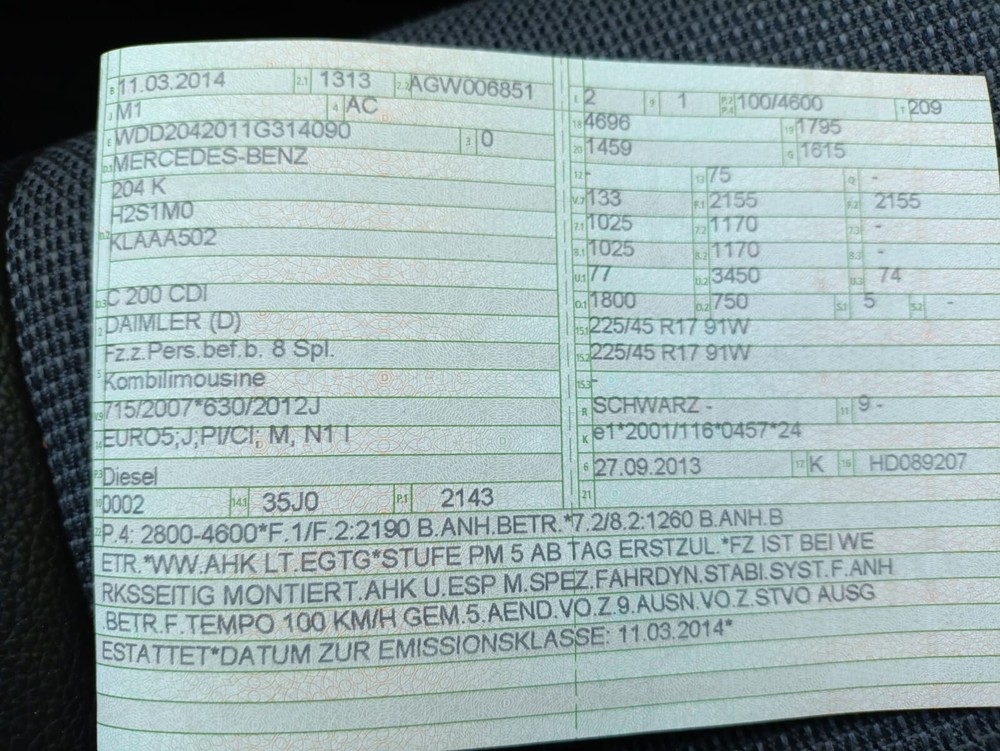 B 11.03.2014 2.1 1313 2.2 AGW006851
J M1 4 AC
E WDD2042011G314090 3 0
D.1 MERCEDES-BENZ
204 K
H2S1M0
D.2 KLAAA502
D.3 C 200 CDI
2 DAIMLER (D)
Fz.z.Pers.bef.b. 8 Spl.
5 Kombilimousine
V.9 715/2007*630/2012J
14 EURO5;J;PI/CI; M, N1 I
P.3 Diesel
10 0002 14.1 35J0 P.1 2143
L 2 9 1 P.2 P.4 100/4600 T 209
18 4696 19 1795
20 1459 G 1615
12 - 13 75 Q -
V.7 133 F.1 2155 F.2 2155
7.1 1025 7.2 1170 7.3 -
8.1 1025 8.2 1170 8.3 -
U.1 77 U.2 3450 U.3 74
O.1 1800 O.2 750 S.1 5 S.2 -
15.1 225/45 R17 91W
15.2 225/45 R17 91W
15.3 -
R SCHWARZ - 11 9 -
K e1*2001/116*0457*24
6 27.09.2013 17 K 16 HD089207
21
22 P.4: 2800-4600*F.1/F.2:2190 B.ANH.BETR.*7.2/8.2:1260 B.ANH.B
ETR.*WW.AHK LT.EGTG*STUFE PM 5 AB TAG ERSTZUL.*FZ IST BEI WE
RKSSEITIG MONTIERT.AHK U.ESP M.SPEZ.FAHRDYN.STABI.SYST.F.ANH
.BETR.F.TEMPO 100 KM/H GEM.5.AEND.VO.Z.9.AUSN.VO.Z.STVO AUSG
ESTATTET*DATUM ZUR EMISSIONSKLASSE: 11.03.2014*